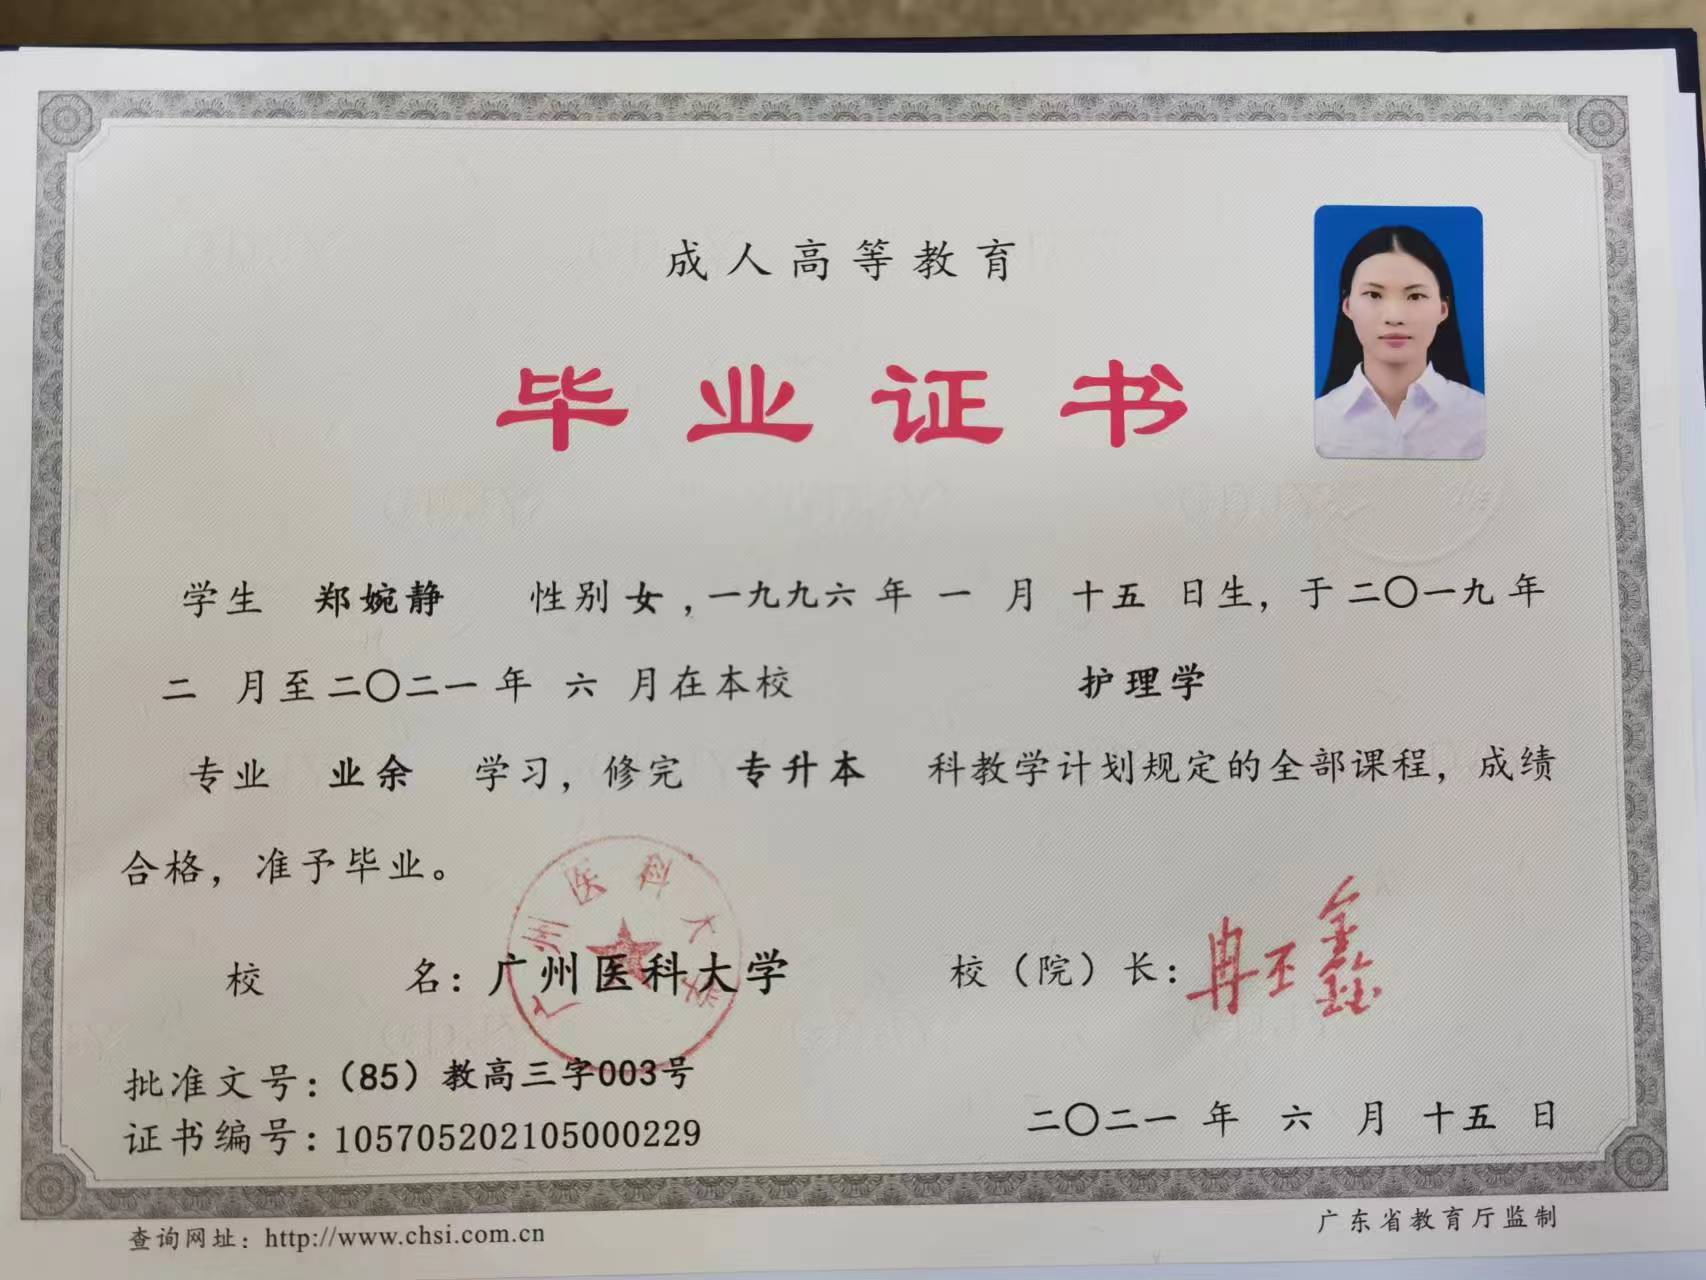 成人高等教育
毕业证书
学生 郑婉静 性别 女，一九九六 年 一 月 十五 日生，于 二〇一九 年
二 月至 二〇二一 年 六 月在本校 护理学
专业 业余 学习，修完 专升本 科教学计划规定的全部课程，成绩
合格，准予毕业。
广州医科大学
校 名：广州医科大学 校（院）长：
批准文号：（85）教高三字003号
证书编号：105705202105000229
二〇二一 年 六 月 十五 日
查询网址：http://www.chsi.com.cn
广东省教育厅监制